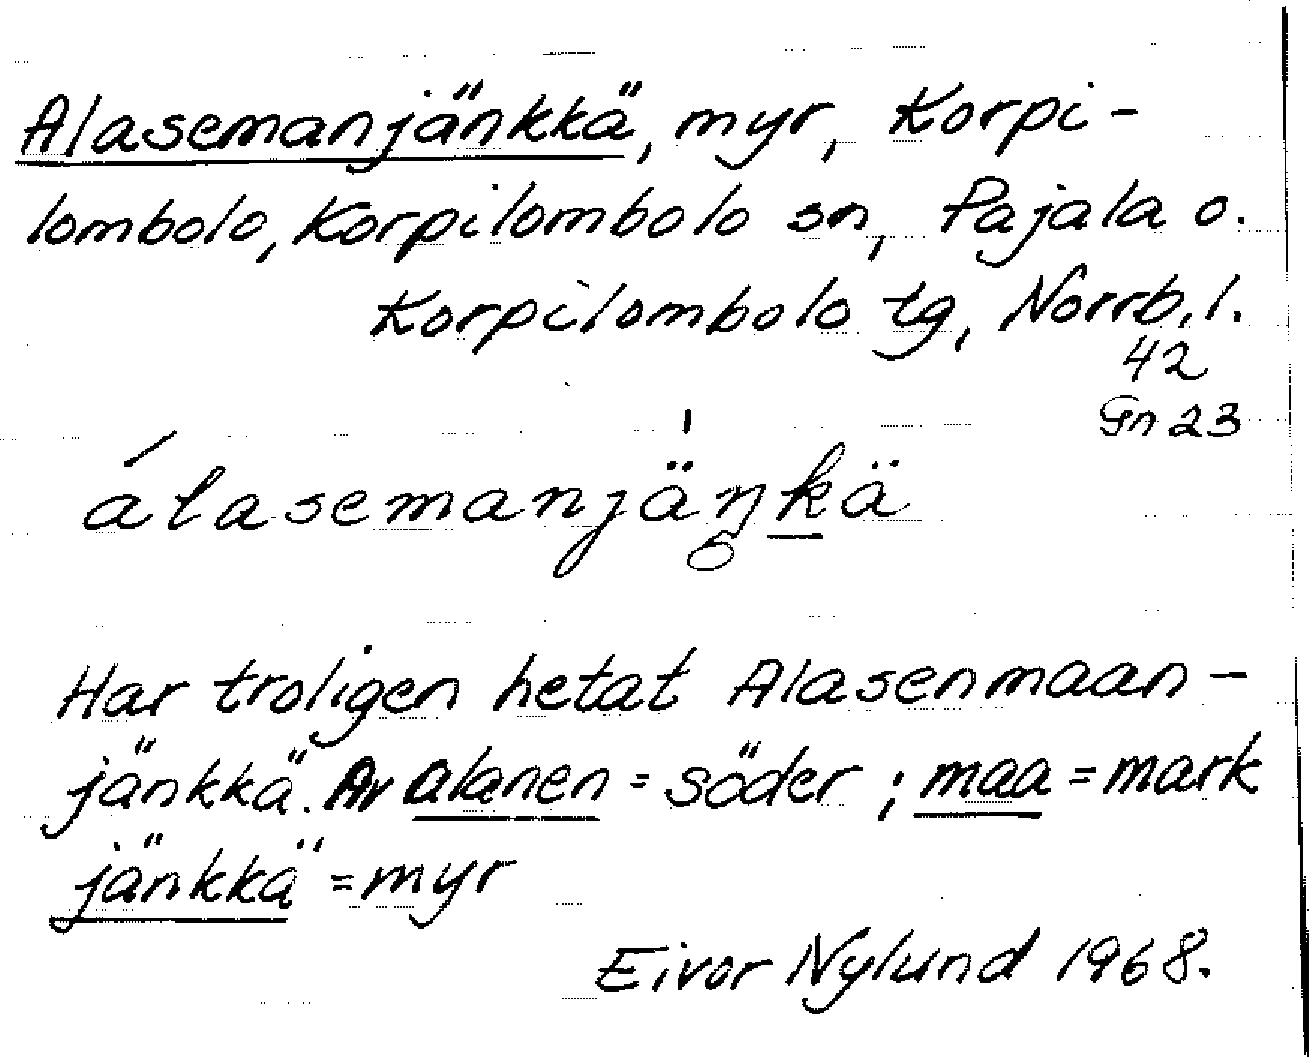 Alasemanjänkkä, myr, Korpi-
lombolo, Korpilombolo sn, Pajala o.
Korpilombolo tg, Norrb. l.
42
Gn 23
álasemanjäŋkä
Har troligen hetat Alasenmaan-
jänkkä. Av alanen = söder ; maa = mark
jänkkä = myr
Eivor Nylund 1968.